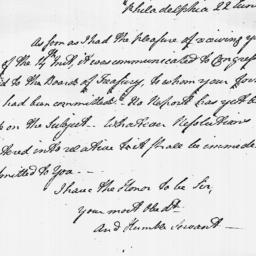 Philadelphia 22 June
As soon as I had the pleasure of receiving y
of the 4th Inst, it was communicated to Congress
to the Board of Treasury, to whom your
had been committed. No Report has yet b
on the Subject. Whatever Resolutions
tered into relative to it shall be immedi
mitted to You
I have the Honor to be Sir,
your most Obedt
And Humble Servant